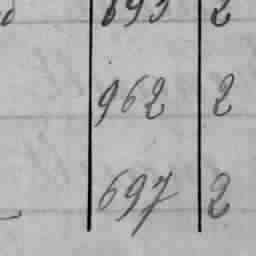 693 2
962 2
697 2